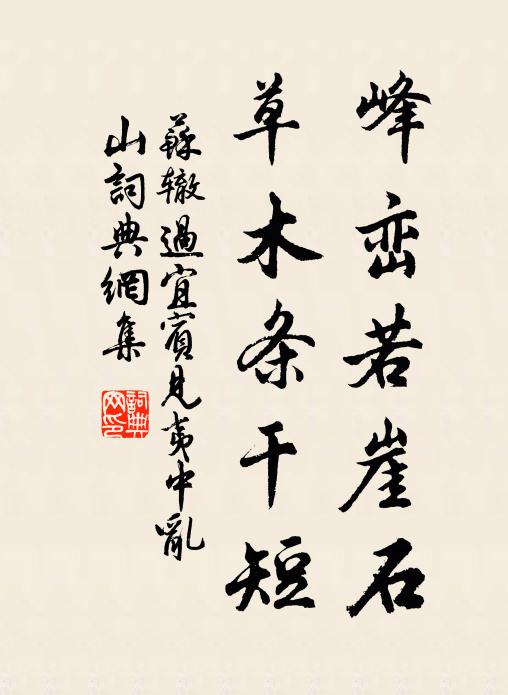 峰峦若崖石
草木条干短
蘇辙過宜賓見夷中亂
山詞典網集
詞典
网印